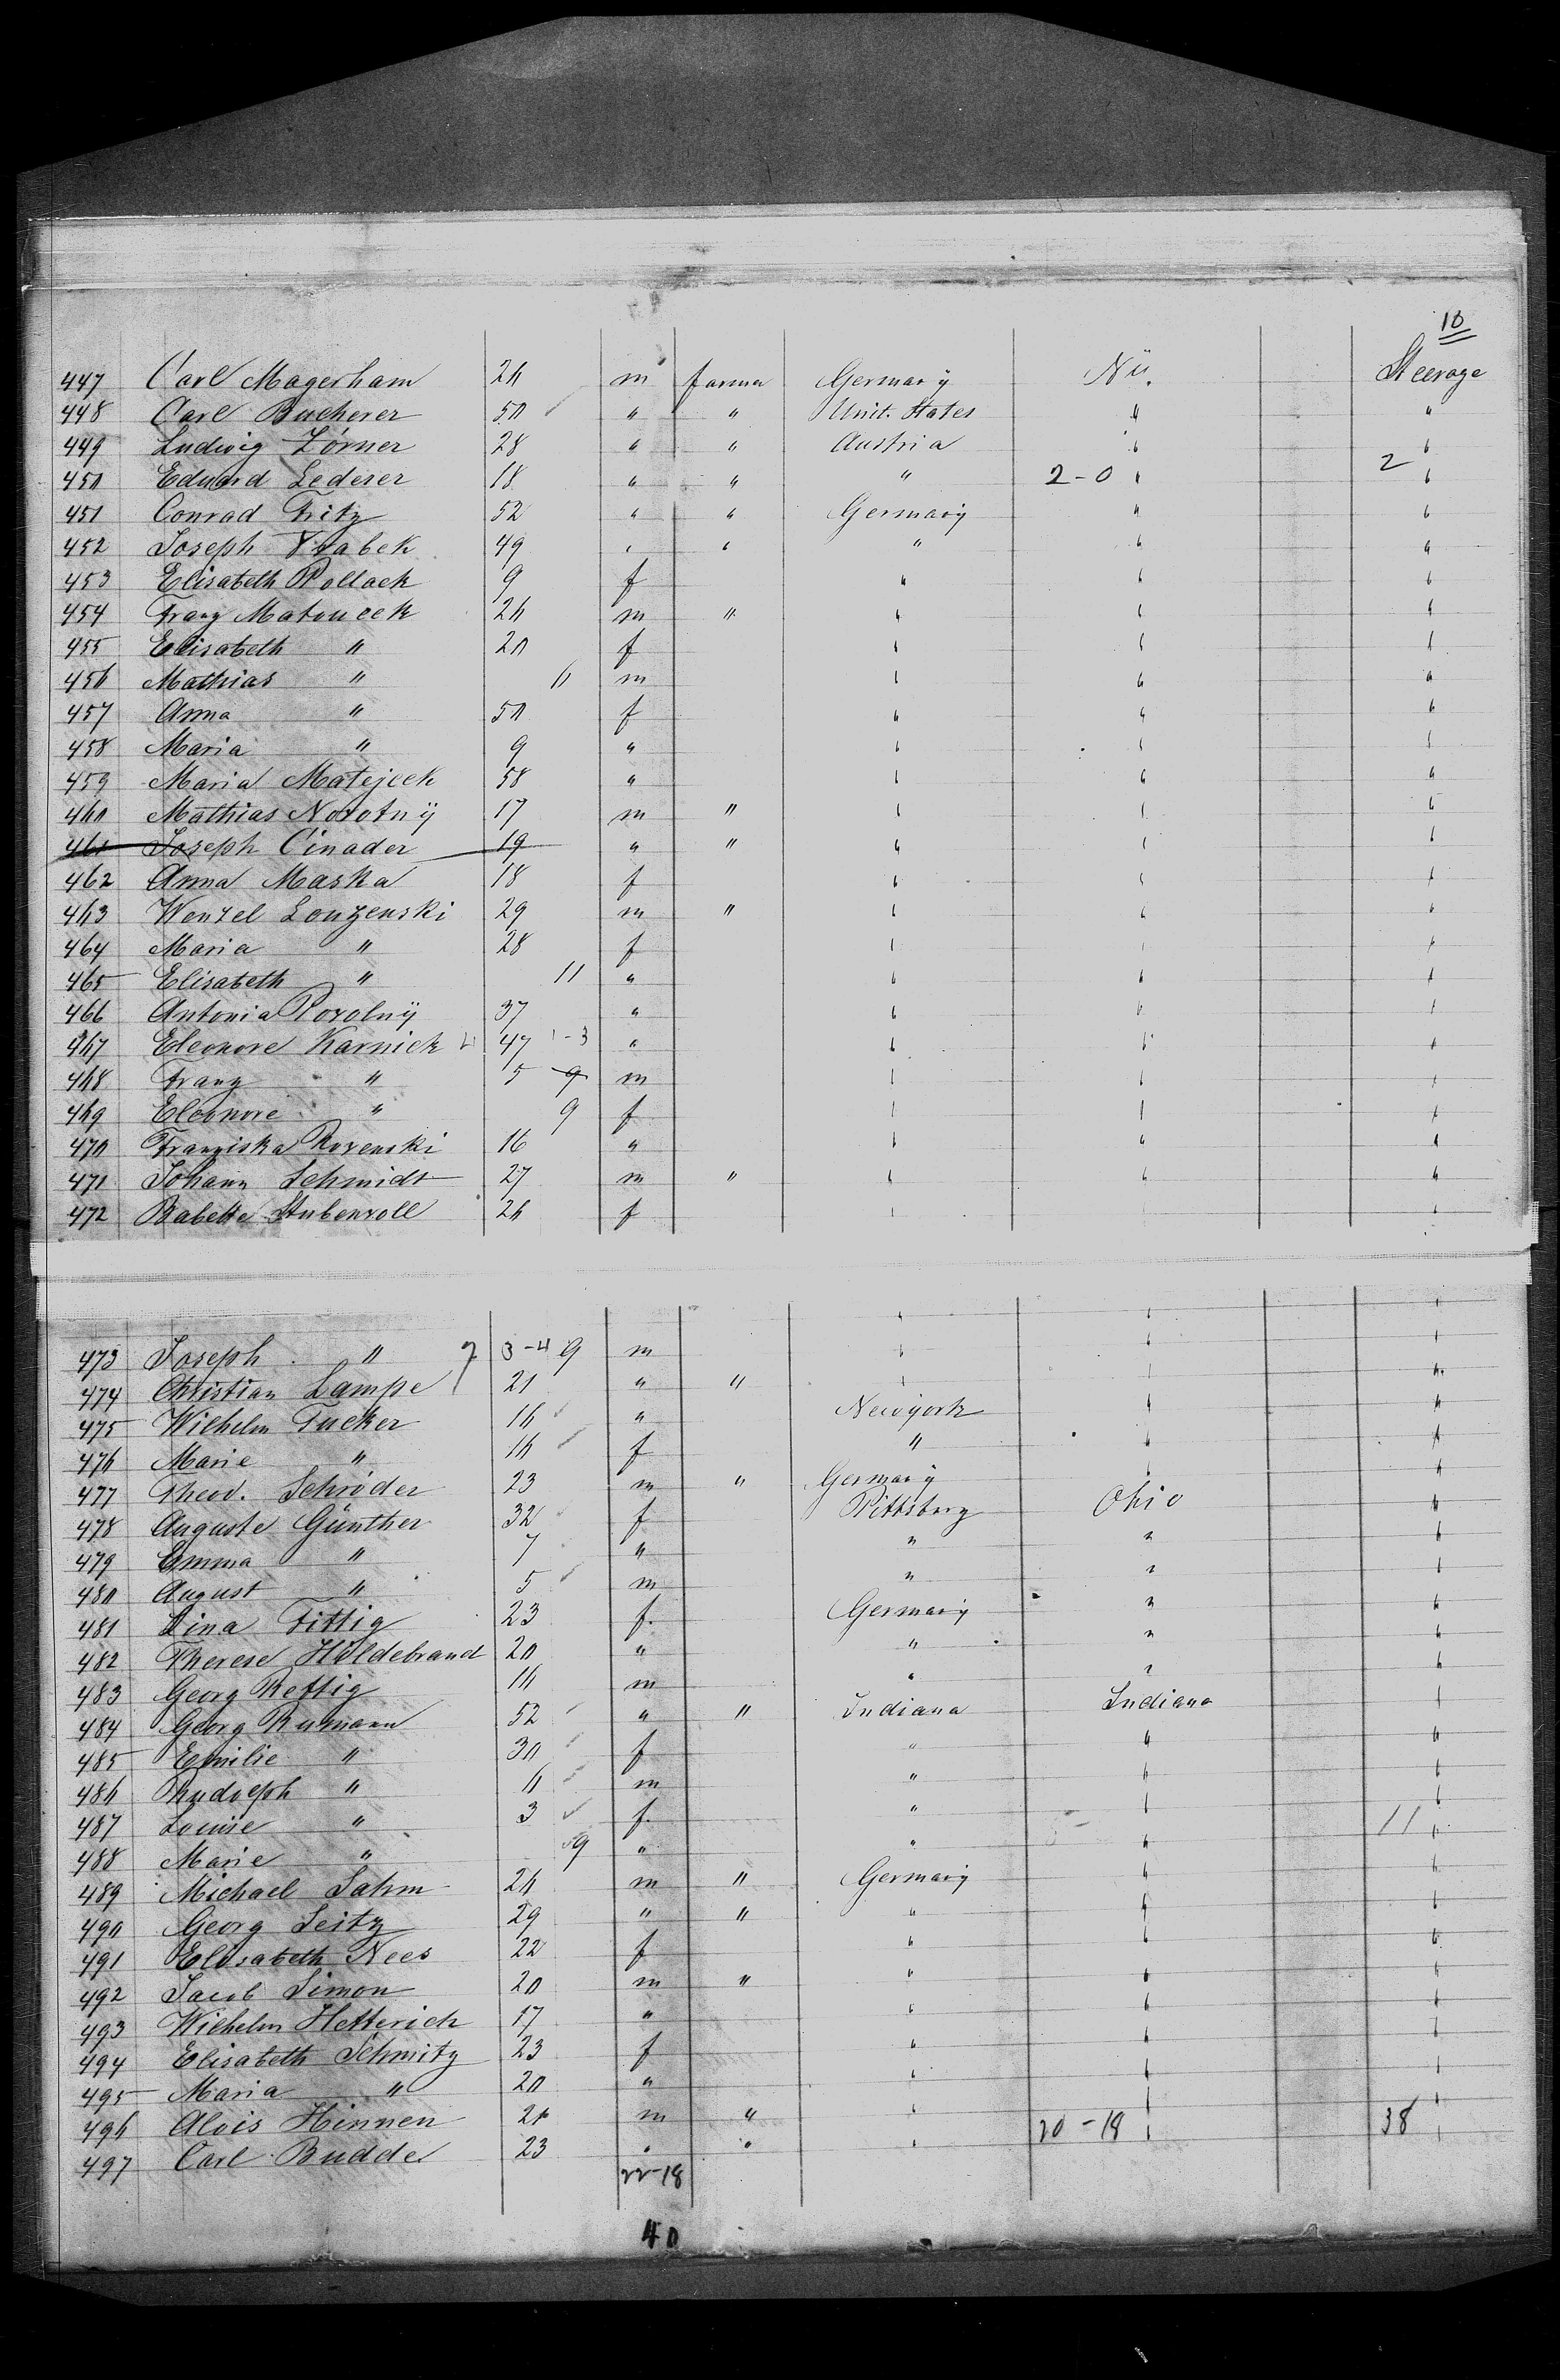 10
447 Carl Magerham 26 m farmer Germany NY. Steerage
448 Carl Bucherer 50 " " Unit. States " "
449 Ludwig Zörner 28 " " Austria " "
450 Eduard Lederer 18 " " " 2-0 " 2 "
451 Conrad Fritz 52 " " Germany " "
452 Joseph Vrabek 49 " " " " "
453 Elisabeth Pollack 9 f " " "
454 Franz Matoucek 26 m " " " "
455 Elisabeth " 20 f " " "
456 Mathias " 6 m " " "
457 Anna " 50 f " " "
458 Maria " 9 " " " "
459 Maria Matejcek 58 " " " "
460 Mathias Novotny 17 m " " " "
461 Joseph Cinader 19 " " " " "
462 Anna Maska 18 f " " "
463 Wenzel Louzenski 29 m " " " "
464 Maria " 28 f " " "
465 Elisabeth " 11 " " " "
466 Antonia Povolny 37 " " " "
467 Eleonore Karnick 4 47 1-3 " " " "
468 Franz " 5 9 m " " "
469 Eleonore " 9 f " " "
470 Franziska Rozenski 16 " " " "
471 Johann Schmidt 27 m " " " "
472 Babette Stubenvoll 26 f " " "
473 Joseph " 7 3-4 9 m " " "
474 Christian Lampe 21 " " " " "
475 Wilhelm Tucker 16 " Newyork " "
476 Marie " 16 f " " "
477 Theod. Schröder 23 m " Germany " "
478 Auguste Günther 32 f Pittsburg Ohio "
479 Emma " 7 " " " "
480 August " 5 m " " "
481 Lina Fittig 23 f. Germany " "
482 Therese Hildebrand 20 " " " "
483 Georg Rettig 16 m " " "
484 Georg Rumann 52 " " Indiana Indiana "
485 Emilie " 30 f " " "
486 Rudolph " 6 m " " "
487 Louise " 3 f. " " 11 "
488 Marie " 9 " " " "
489 Michael Sahm 26 m " Germany " "
490 Georg Seitz 29 " " " " "
491 Elisabeth Nees 22 f " " "
492 Jacob Simon 20 m " " " "
493 Wilhelm Hetterich 17 " " " "
494 Elisabeth Schmitz 23 f " " "
495 Maria " 20 " " " "
496 Alois Hinnen m " " "
497 Carl Budde 23 " " " 20-18 " 38 "
22-18
40